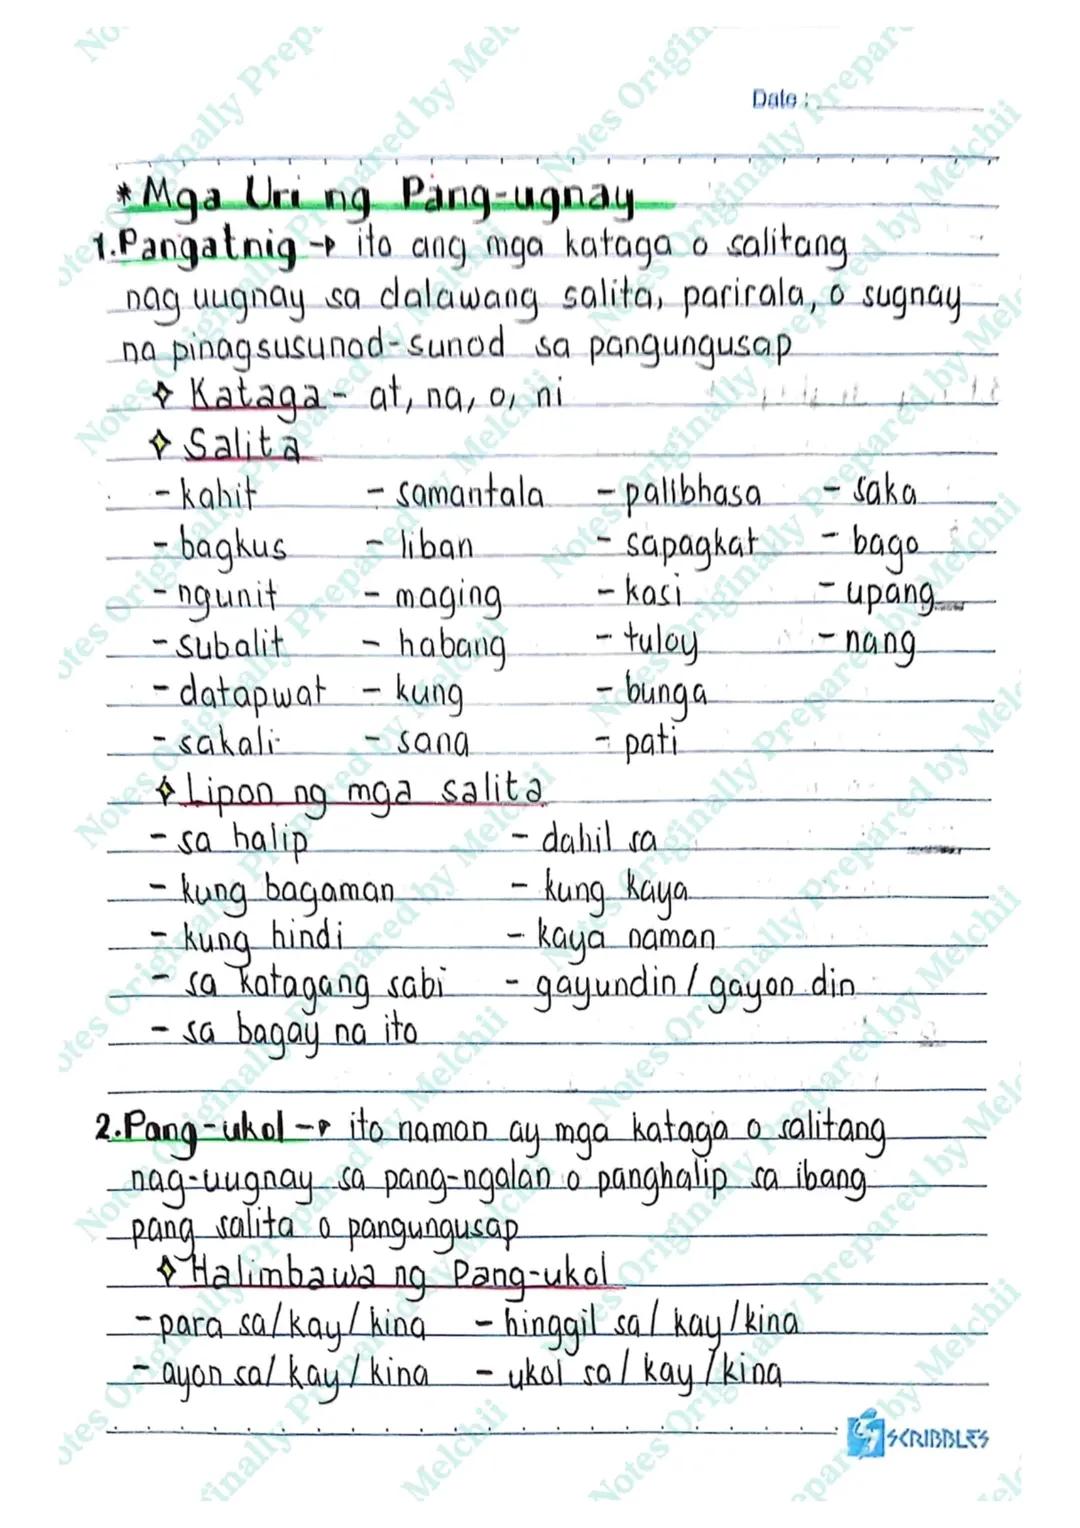 Date:
*Mga Uri ng Pang-ugnay
1.Pangatnig → ito ang mga kataga o salitang
nag uugnay sa dalawang salita, parirala, o sugnay
na pinagsusunod-sunod sa pangungusap
✧ Kataga - at, na, o, ni
✧ Salita
- kahit - samantala - palibhasa - saka
- bagkus - liban - sapagkat - bago
- ngunit - maging - kasi - upang
- subalit - habang - tuloy - nang
- datapwat - kung - bunga
- sakali - sana - pati
✧ Lipon ng mga salita
- sa halip - dahil sa
- kung bagaman - kung kaya
- kung hindi - kaya naman
- sa katagang sabi - gayundin / gayon din
- sa bagay na ito
2.Pang-ukol → ito naman ay mga kataga o salitang
nag-uugnay sa pang-ngalan o panghalip sa ibang
pang salita o pangungusap
✧ Halimbawa ng Pang-ukol
- para sa/kay/kina - hinggil sa/ kay/kina
- ayon sa/ kay/ kina - ukol sa/ kay/kina
SCRIBBLES
Notes Originally Prepared by Melchii